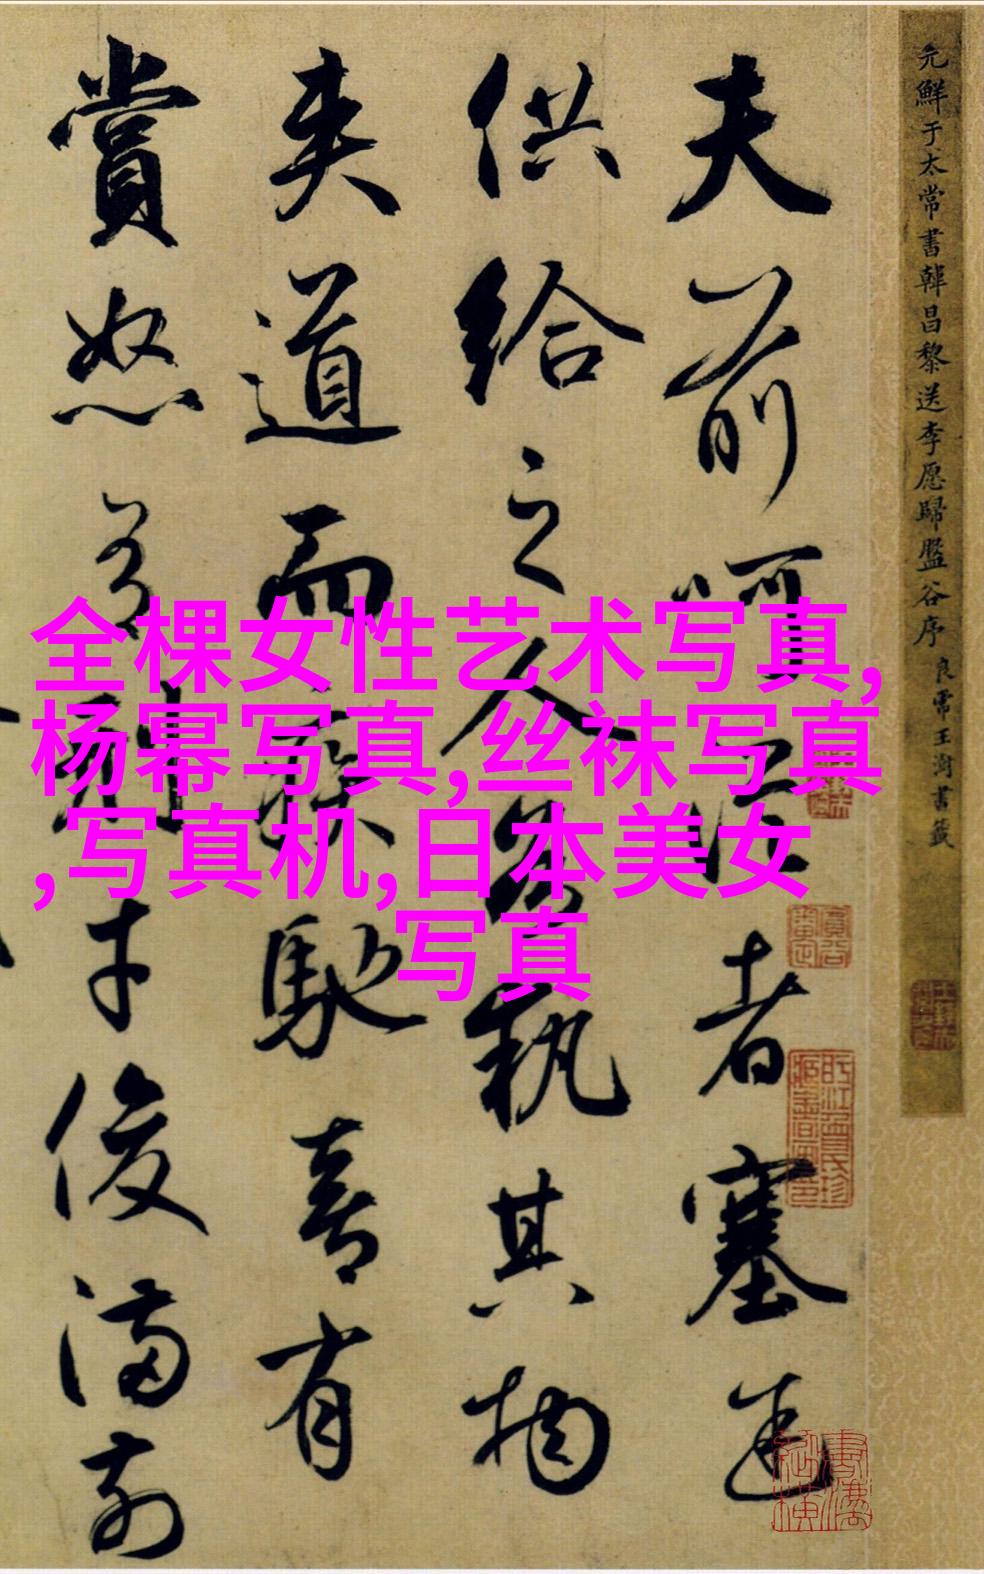 元鮮于太常書韓昌黎送李愿歸盤谷序 良常王澍書籤
夫前呵從者塞途
供給之人各執其物
夾道而疾馳喜有
賞怒有刑才俊滿前
全棵女性艺术写真,
杨幂写真,丝袜写真
,写真机,日本美女
写真